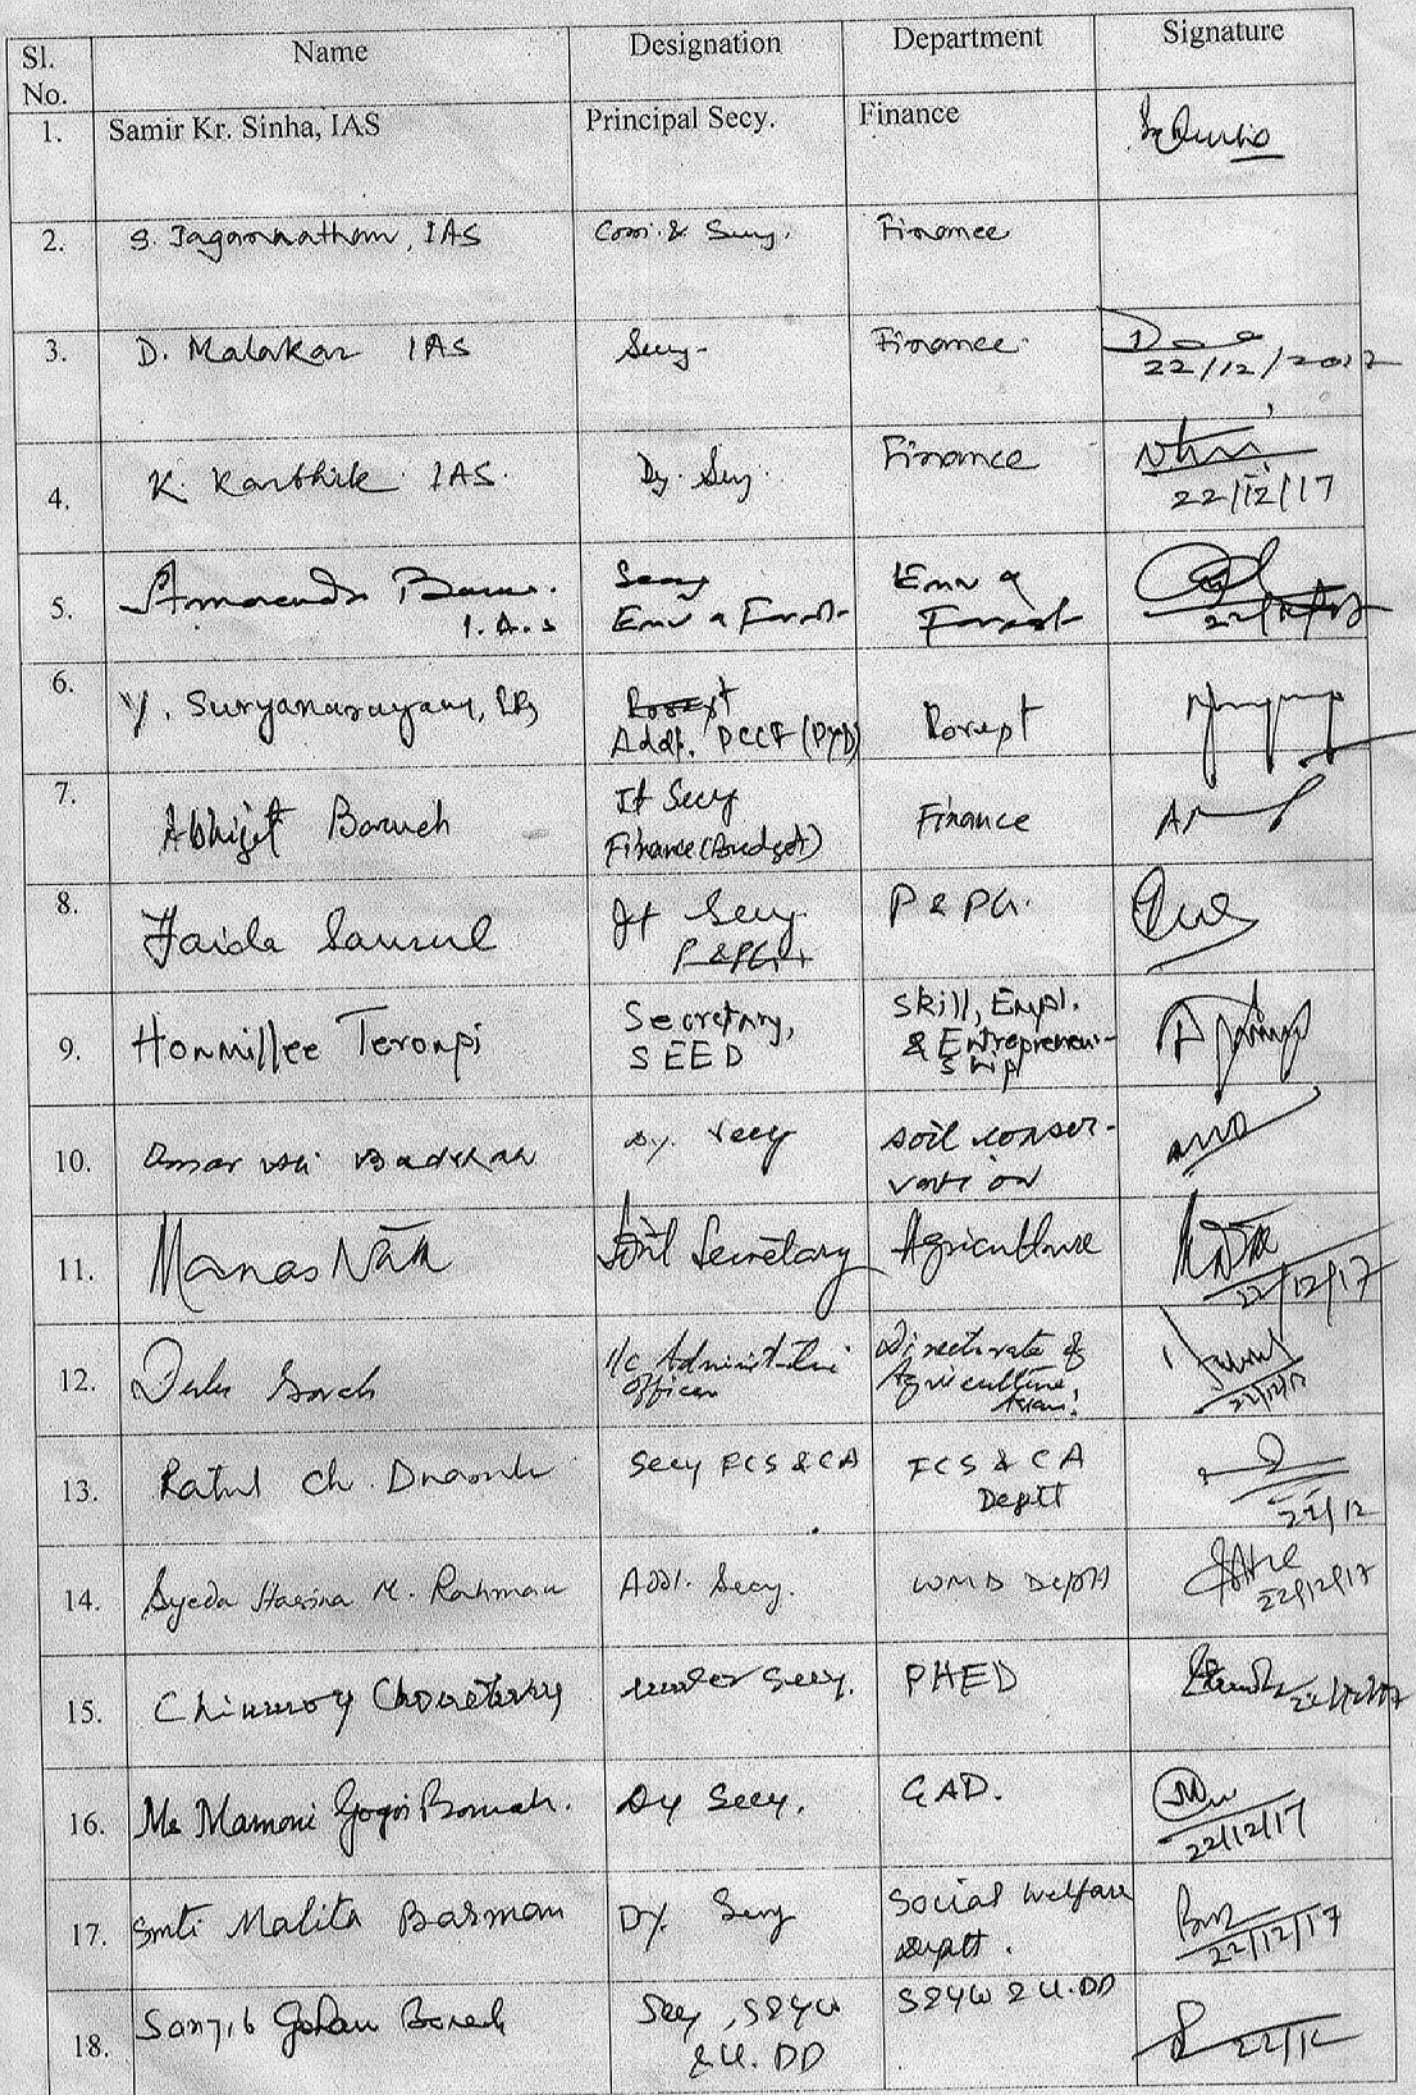 Sl. No. Name Designation Department Signature
1. Samir Kr. Sinha, IAS Principal Secy. Finance
2. S. Jagannatham, IAS Com. & Secy. Finance
3. D. Malakar IAS Secy. Finance
22/12/2017
4. K. Karthik IAS. Dy. Secy. Finance
22/12/17
5. Amarendra Barua. Secy Env &
I.A.S Env & Forest Forest
6. Y. Suryanarayana, Forest
Addl. PCCF
7. Abhijit Baruah Jt Secy Finance
Finance (Budget)
8. Jt Secy. P & PG.
P & PG
9. Honmillee Teronpi Secretary, Skill, Empl.
SEED & Entrepreneur-
ship
10. Dy. Secy Soil conser-
vation
11. Manas Nath Joint Secretary Agriculture
22/12/17
12. I/c Administrative Directorate of
Officer Agriculture,
Assam.
22/12/17
13. Ratul Ch. Secy FCS & CA FCS & CA
Deptt
22/12
14. Syeda Hasina M. Rahman Addl. Secy. Deptt
22/12/17
15. Chinmoy Choudhury Under Secy. PHED
22/12/17
16. Ms Mamoni Gogoi Boruah. Dy Secy. GAD.
22/12/17
17. Smti Malita Barman Dy. Secy Social Welfare
Deptt.
22/12/17
18. Sanjib Gohain Boruah Secy, S&YW S&YW & U.DD
& U.DD
22/12